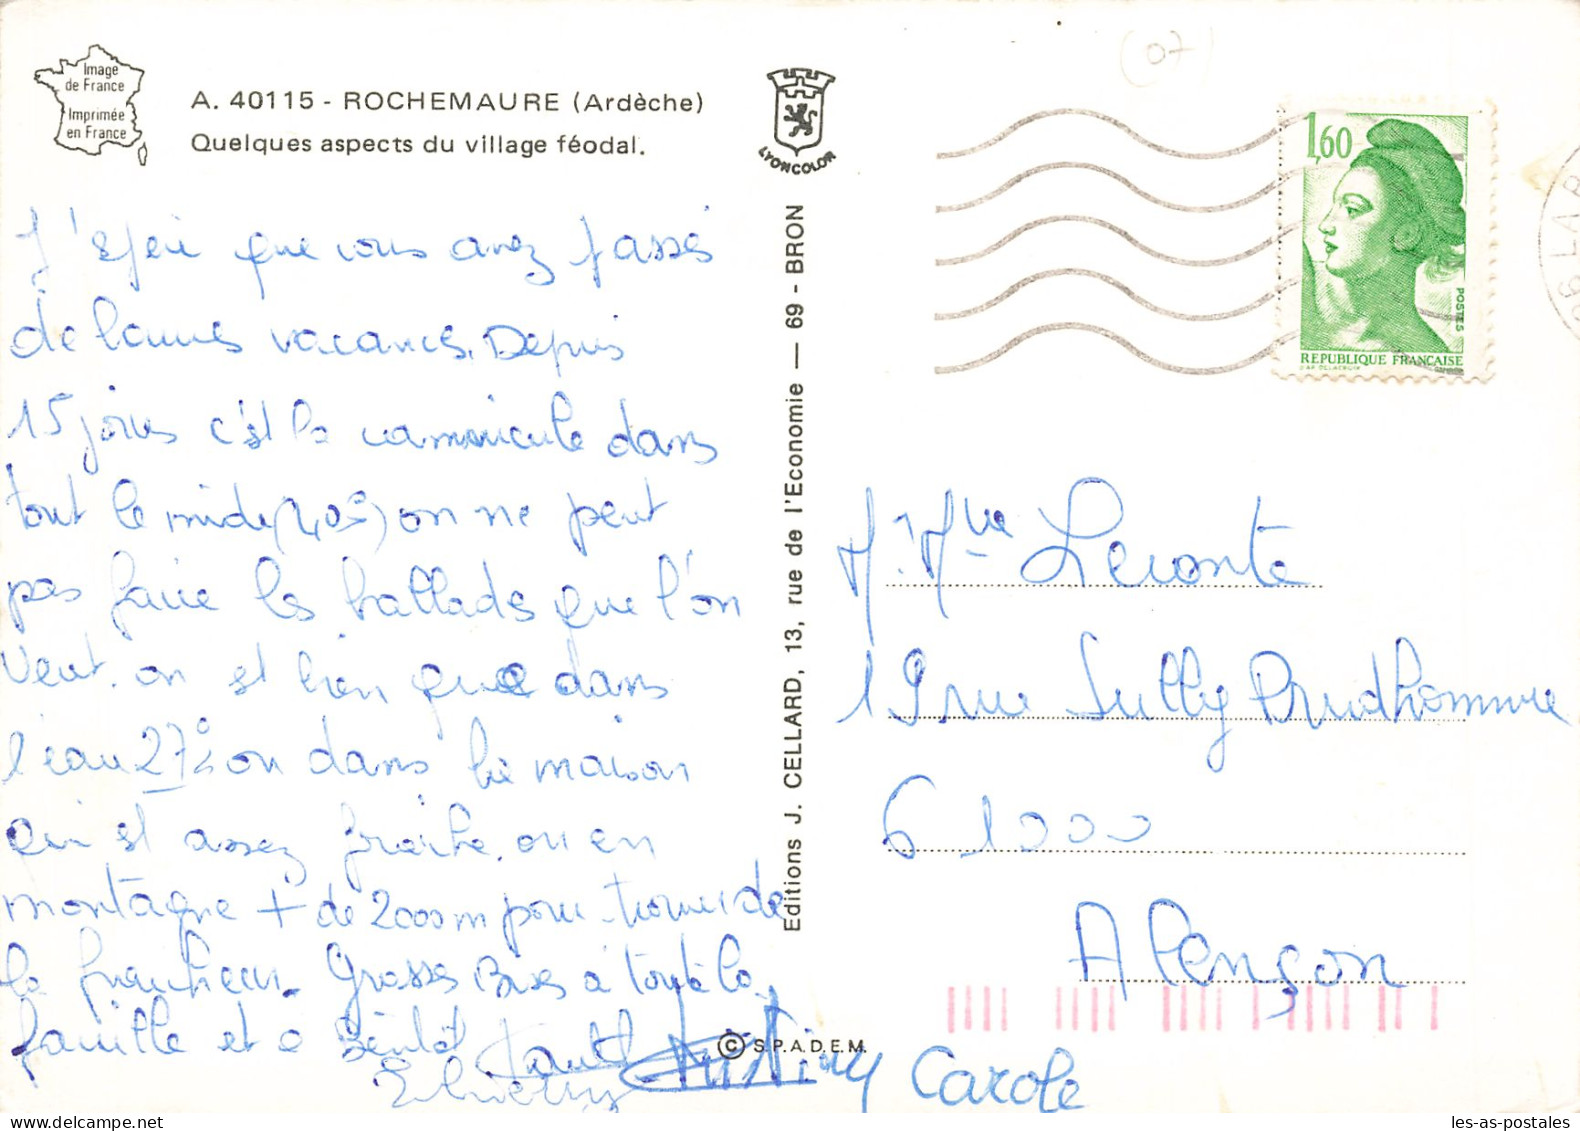 Image
de France
Imprimée
en France
A. 40115 - ROCHEMAURE (Ardèche)
Quelques aspects du village féodal.
LYONCOLOR
(07)
1,60
POSTES
REPUBLIQUE FRANÇAISE
06 LA B
J'espère que vous avez passés
de bonnes vacances. Depuis
15 jours c'est la cannicule dans
tout le midi (40°) on ne peut
pas faire les ballades que l'on
veut. on est bien que dans
l'eau 27° ou dans la maison
qui est assez fraiche. ou en
montagne + de 2000 m pour trouver de
la fraicheur. Grosses Bises à toute la
famille et a Bientôt
Thierry
Carole
Editions J. CELLARD, 13, rue de l'Economie — 69 - BRON
© S.P.A.D.E.M.
M. Mme Leconte
19 rue Sully Prudhomme
61000
Alençon
les-as-postales